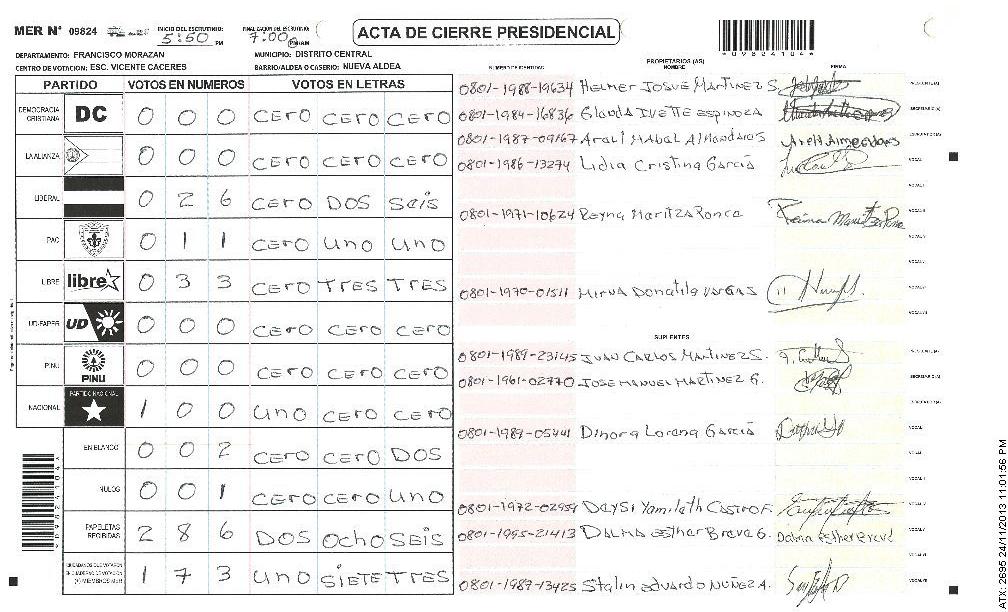 MER N° 09824 INICIO DEL ESCRUTINIO: 5:50 PM FINALIZACION DEL ESCRUTINIO: 7:00 PM/AM ACTA DE CIERRE PRESIDENCIAL
*09824104*
DEPARTAMENTO: FRANCISCO MORAZAN MUNICIPIO: DISTRITO CENTRAL
CENTRO DE VOTACION: ESC. VICENTE CACERES BARRIO/ALDEA O CASERIO: NUEVA ALDEA
PARTIDO VOTOS EN NUMEROS VOTOS EN LETRAS
DEMOCRACIA CRISTIANA DC 0 0 0 CERO CERO CERO
LA ALIANZA 0 0 0 CERO CERO CERO
LIBERAL 0 2 6 CERO DOS SEIS
PAC 0 1 1 CERO UNO UNO
LIBRE libre 0 3 3 CERO TRES TRES
UD-FAPER UD 0 0 0 CERO CERO CERO
PINU PINU 0 0 0 CERO CERO CERO
NACIONAL PARTIDO NACIONAL 1 0 0 UNO CERO CERO
EN BLANCO 0 0 2 CERO CERO DOS
NULOS 0 0 1 CERO CERO UNO
PAPELETAS RECIBIDAS 2 8 6 DOS OCHO SEIS
CIUDADANOS QUE VOTARON EN CUADERNO DE VOTACION (+) MIEMBROS MER 1 7 3 UNO SIETE TRES
*09824104*
PROPIETARIOS (AS)
NUMERO DE IDENTIDAD NOMBRE FIRMA
0801-1988-19634 Helmer Josué Martinez S. PRESIDENTE(A)
0801-1984-16836 Glenda Ivette Espinoza SECRETARIO(A)
0801-1987-09167 Arali Mabal Almendares
0801-1986-13274 Lidia Cristina García VOCAL I
0801-1971-10624 Reyna Maritza Ponce
0801-1970-01511 Mirna Donatila Vargas
SUPLENTES
0801-1989-23145 Juan Carlos Martinez S. PRESIDENTE(A)
0801-1961-02770 Jose Manuel Martinez G. SECRETARIO(A)
0801-1989-05441 Dinora Lorena García
0801-1972-02959 Deysi Yamileth Castro F.
0801-1995-21413 Dalma Esther Breve G. Dalma Esther Breve
0801-1987-13425 Stalin Eduardo Nuñez A.
ATX: 2995 24/11/2013 11:01:56 PM